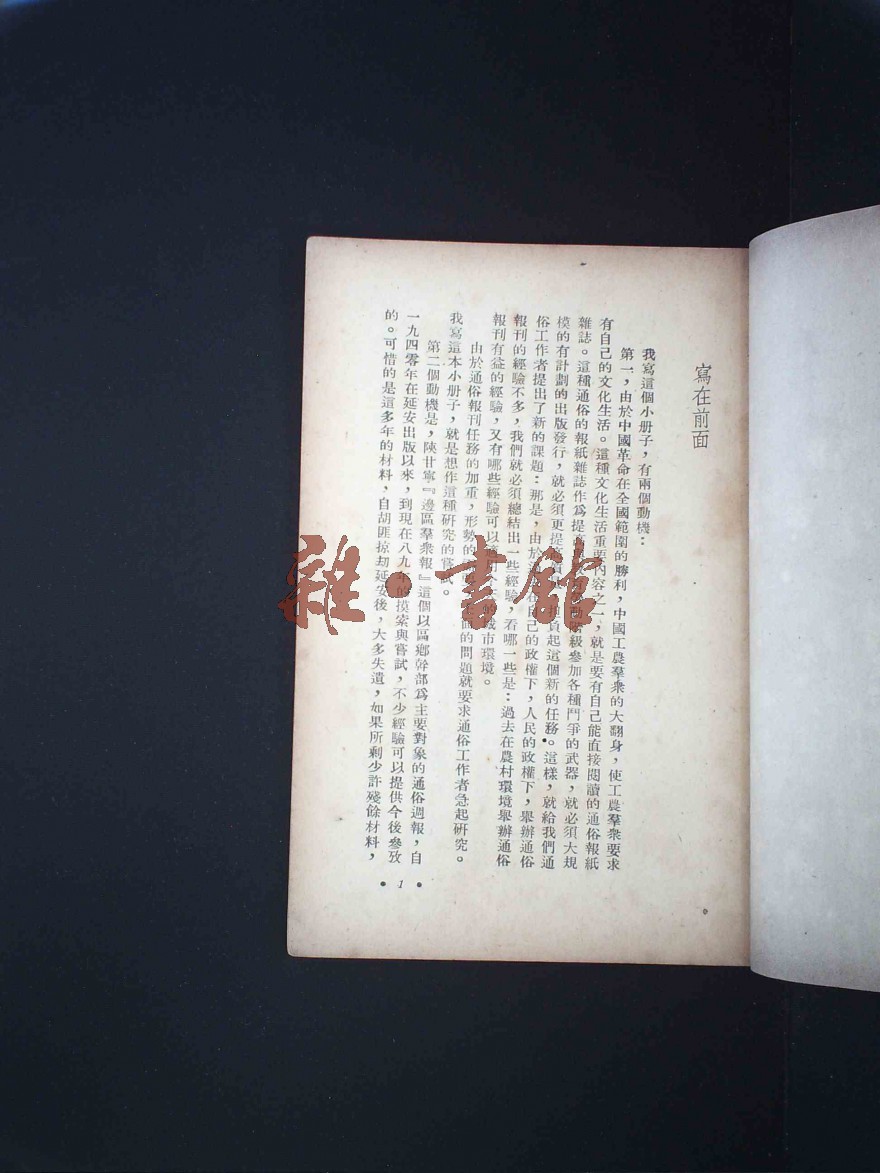 寫在前面
我寫這個小册子，有兩個動機：
第一，由於中國革命在全國範圍的勝利，中國工農羣衆的大翻身，使工農羣衆要求
有自己的文化生活。這種文化生活重要內容之一，就是要有自己能直接閱讀的通俗報紙
雜誌。這種通俗的報紙雜誌作爲提高級參加各種鬥爭的武器，就必須大規
模的有計劃的出版發行，就必須更提負起這個新的任務。這樣，就給我們通
俗工作者提出了新的課題：那是，由於在自己的政權下，人民的政權下，舉辦通俗
報刊的經驗不多，我們就必須總結出一些經驗，看哪一些是：過去在農村環境舉辦通俗
報刊有益的經驗，又有哪些經驗可以城市環境。
由於通俗報刊任務的加重，形勢的面的問題就要求通俗工作者急起研究。
我寫這本小册子，就是想作這種研究的嘗。
第二個動機是，陝甘寧『邊區羣衆報』這個以區鄉幹部爲主要對象的通俗週報，自
一九四零年在延安出版以來，到現在八九年的摸索與嘗試，不少經驗可以提供今後參攷
的。可惜的是這多年的材料，自胡匪掠劫延安後，大多失遺，如果所剩少許殘餘材料，
• 1 •
雜·書館